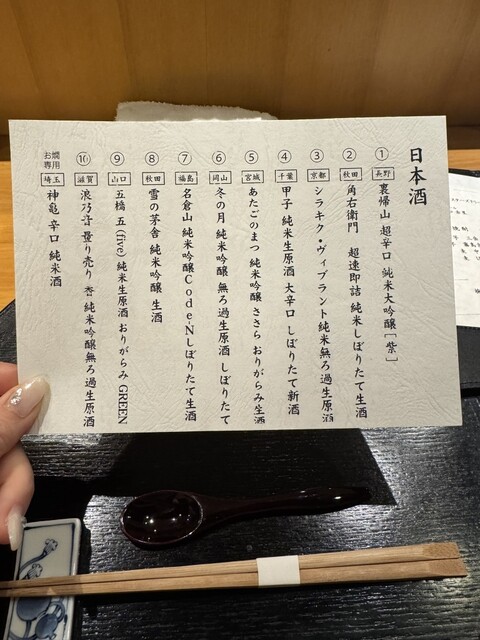 日本酒
① 長野 裏帰山 超辛口 純米大吟醸［紫］
② 秋田 角右衛門 超遠即詰 純米しぼりたて生酒
③ 京都 シラキク・ヴィブラント純米無ろ過生原酒
④ 千葉 甲子 純米生原酒 大辛口 しぼりたて新酒
⑤ 宮城 あたごのまつ 純米吟醸 ささら おりがらみ生酒
⑥ 岡山 冬の月 純米吟醸 無ろ過生原酒 しぼりたて
⑦ 福島 名倉山 純米吟醸CodeNしぼりたて生酒
⑧ 秋田 雪の茅舎 純米吟醸 生酒
⑨ 山口 五橋 五(five) 純米生原酒 おりがらみ GREEN
⑩ 滋賀 浪乃音 量り売り 杏 純米吟醸無ろ過生原酒
お燗専用 埼玉 神亀 辛口 純米酒